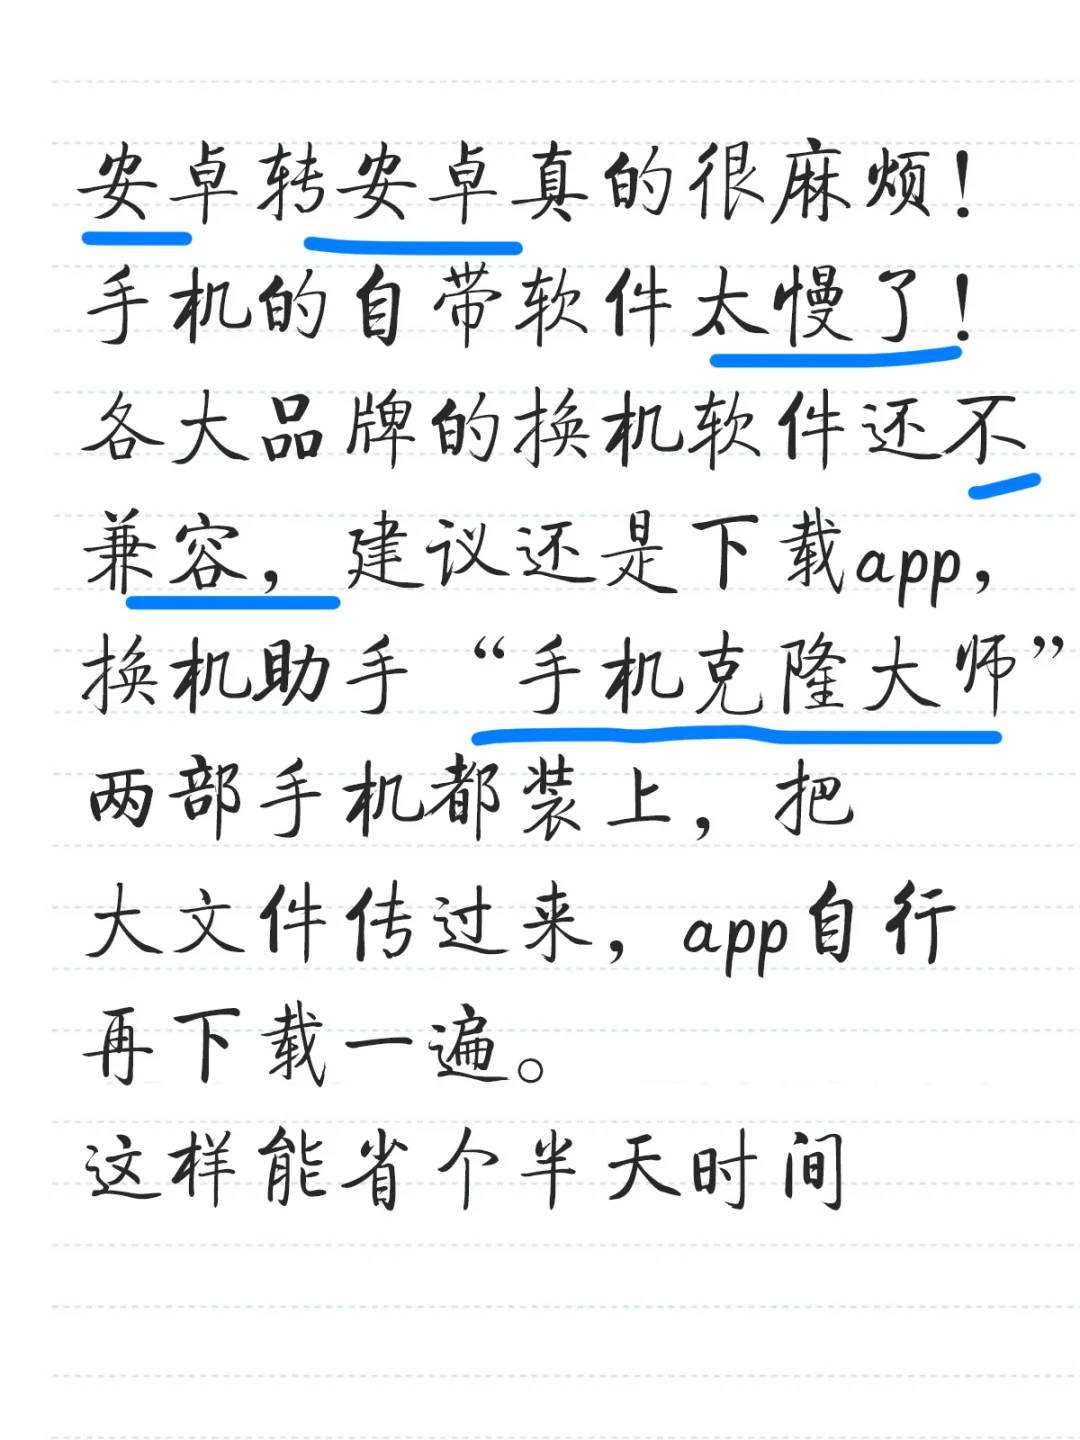 安卓转安卓真的很麻烦!
手机的自带软件太慢了!
各大品牌的换机软件还不
兼容，建议还是下载app，
换机助手“手机克隆大师”
两部手机都装上，把
大文件传过来，app自行
再下载一遍。
这样能省个半天时间